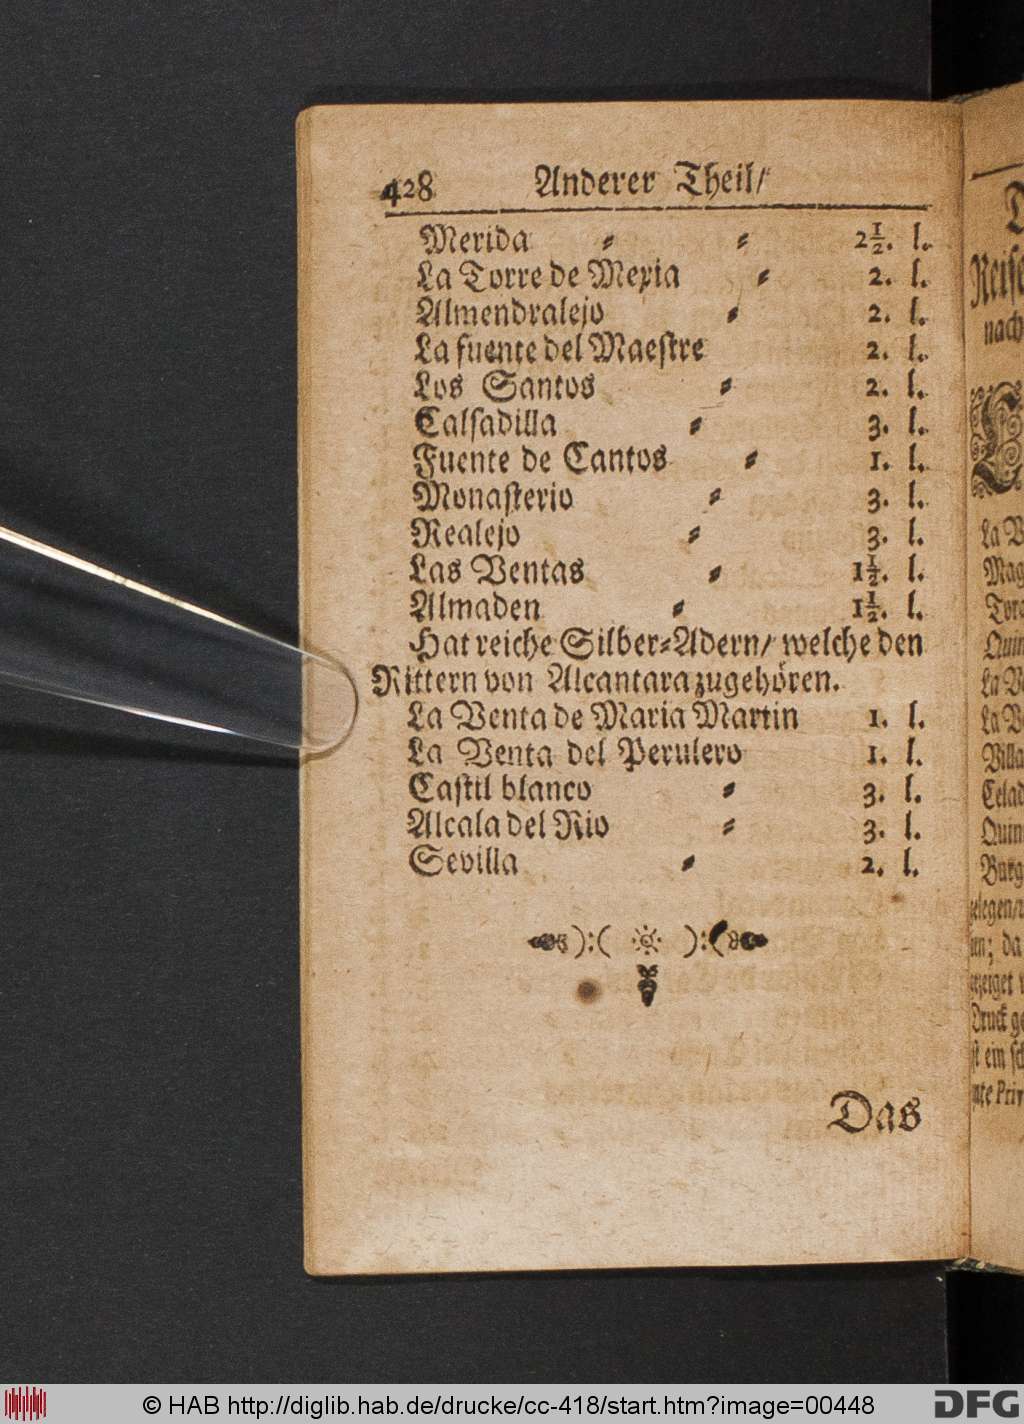 428 Anderer Theil/
Merida ⸗ ⸗ 2½. l.
La Torre de Mexia ⸗ 2. l.
Almendralejo ⸗ 2. l.
La fuente del Maeſtre 2. l.
Los Santos ⸗ 2. l.
Calſadilla ⸗ 3. l.
Fuente de Cantos ⸗ 1. l.
Monaſterio ⸗ 3. l.
Realejo ⸗ 3. l.
Las Ventas ⸗ 1½. l.
Almaden ⸗ 1½. l.
Hat reiche Silber⸗Adern/ welche den
Rittern von Alcantara zugehören.
La Venta de Maria Martin 1. l.
La Venta del Perulero 1. l.
Caſtil blanco ⸗ 3. l.
Alcala del Rio ⸗ 3. l.
Sevilla ⸗ 2. l.
Das
nach
La V
Mag
Quin
La V
La V
Villa
Celad
Quin
Burg
Druck ge
© HAB http://diglib.hab.de/drucke/cc-418/start.htm?image=00448
DFG